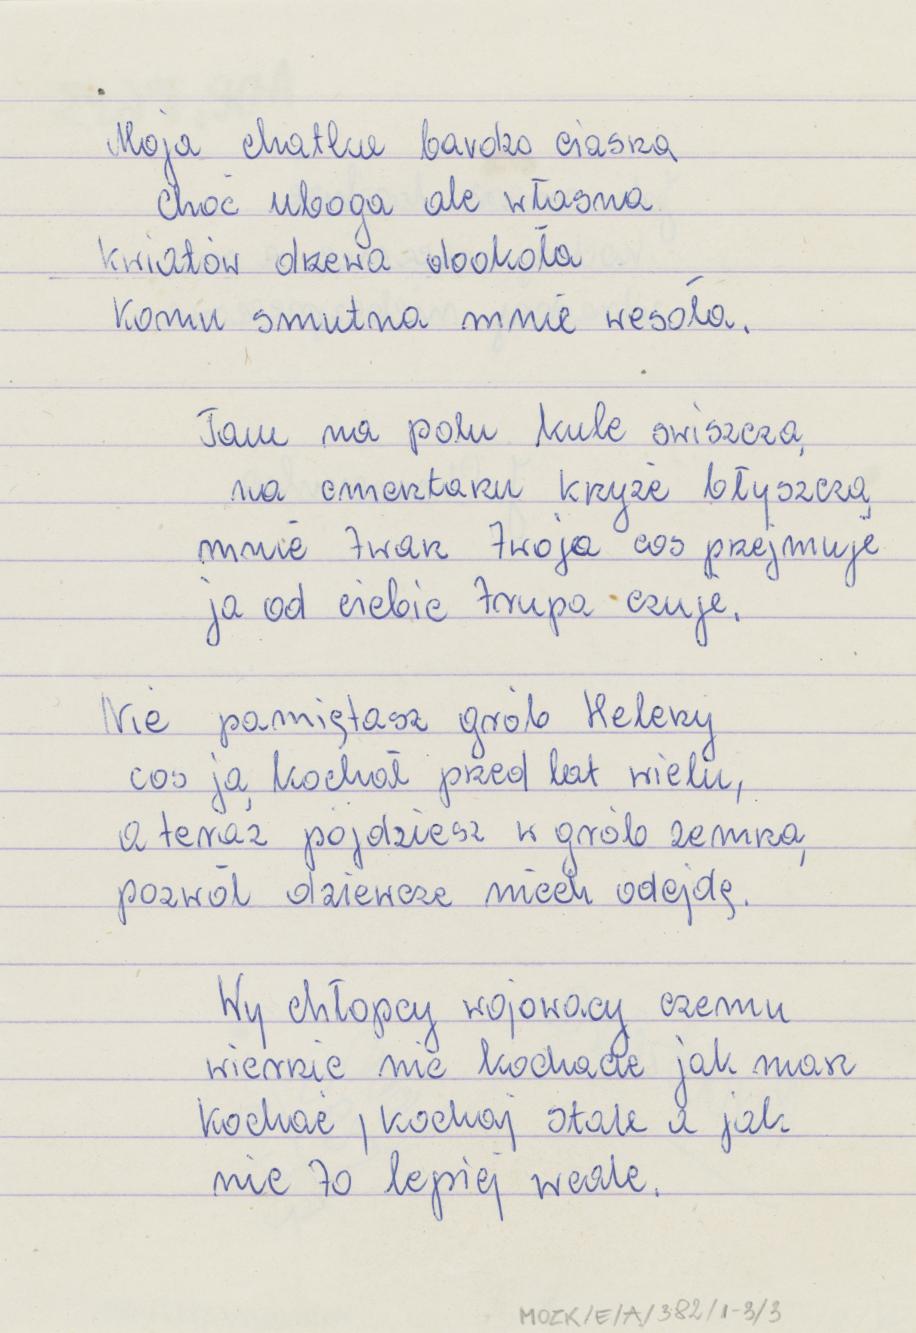 Moja chatka bardzo ciasna
choć uboga ale własna
kwiatów drzewa dookoła
Komu smutna mnie wesoła.
Tam na polu kule swiszczą
na cmentarzu kryże błyszczą
mnie twarz twoja cos przejmuje
ja od ciebie trupa czuje.
Nie pamiętasz grób Heleny
cos ją kochał przed lat wielu,
a teraz pójdziesz w grób zemną
pozwól dziewcze niech odejdę.
Wy chłopcy wojowacy czemu
wiernie nie kochacie jak masz
kochać, kochaj stale a jak
nie to lepiej wcale.
MOZK/E/A/382/1-3/3